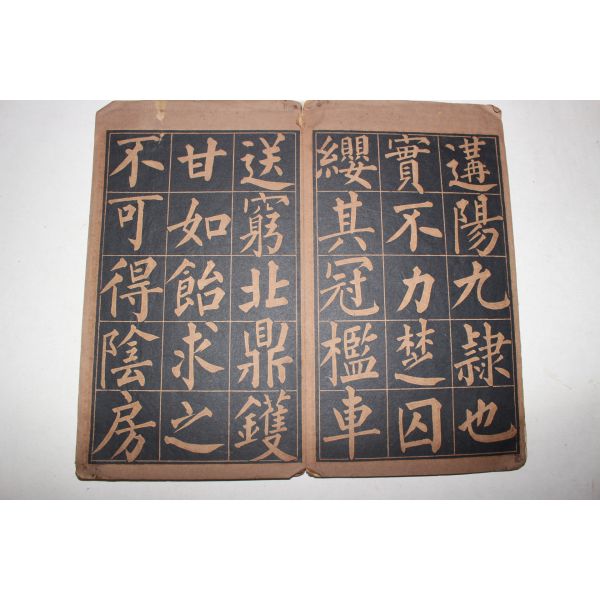 遘陽九隷也
實不力楚囚
纓其冠檻車
送窮北鼎鑊
甘如飴求之
不可得陰房